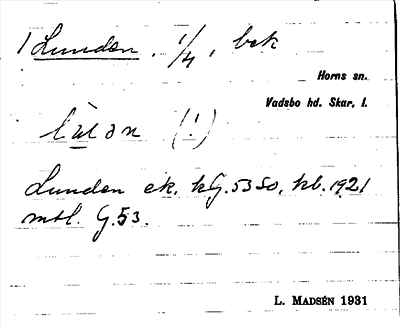 1 Lunden. 1/4, bek
Horns sn.
Vadsbo hd. Skar. l.
(!)
Lunden ek. kG. 53 SO, kb. 1921
mtl. G. 53.
L. MADSÉN 1931